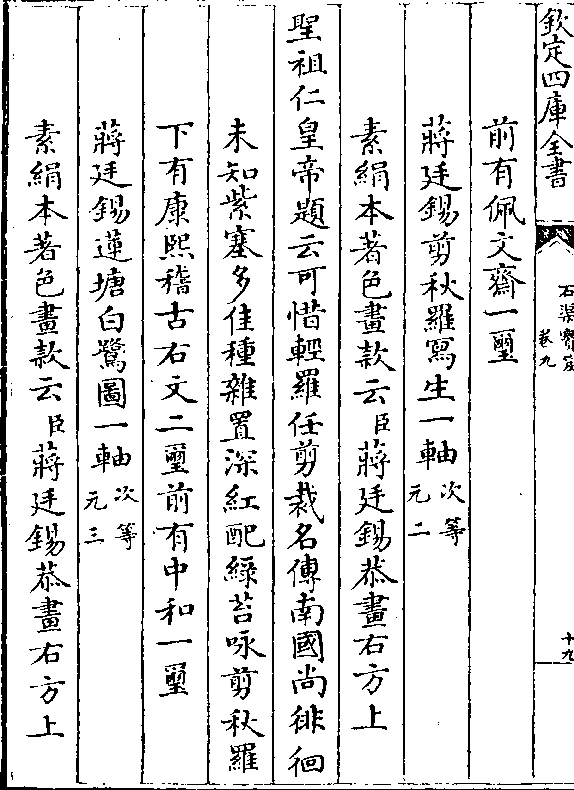 欽定四庫全書
石渠寶笈
卷九
十九
前有佩文齋一璽
蔣廷錫剪秋羅寫生一軸次等元二
素絹本著色畫款云臣蔣廷錫恭畫右方上
聖祖仁皇帝題云可惜輕羅任剪裁名傳南國尚徘徊
未知紫塞多佳種雜置深紅配綠苔咏剪秋羅
下有康熙稽古右文二璽前有中和一璽
蔣廷錫蓮塘白鷺圖一軸次等元三
素絹本著色畫款云臣蔣廷錫恭畫右方上